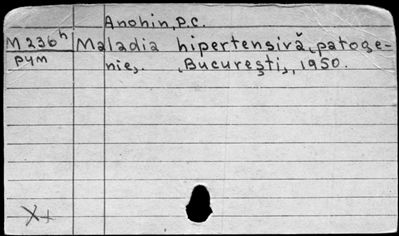 Anohin, P.C.
M 236h Maladia hipertensivă, patoge-
рум nie,. București, 1950.
X+